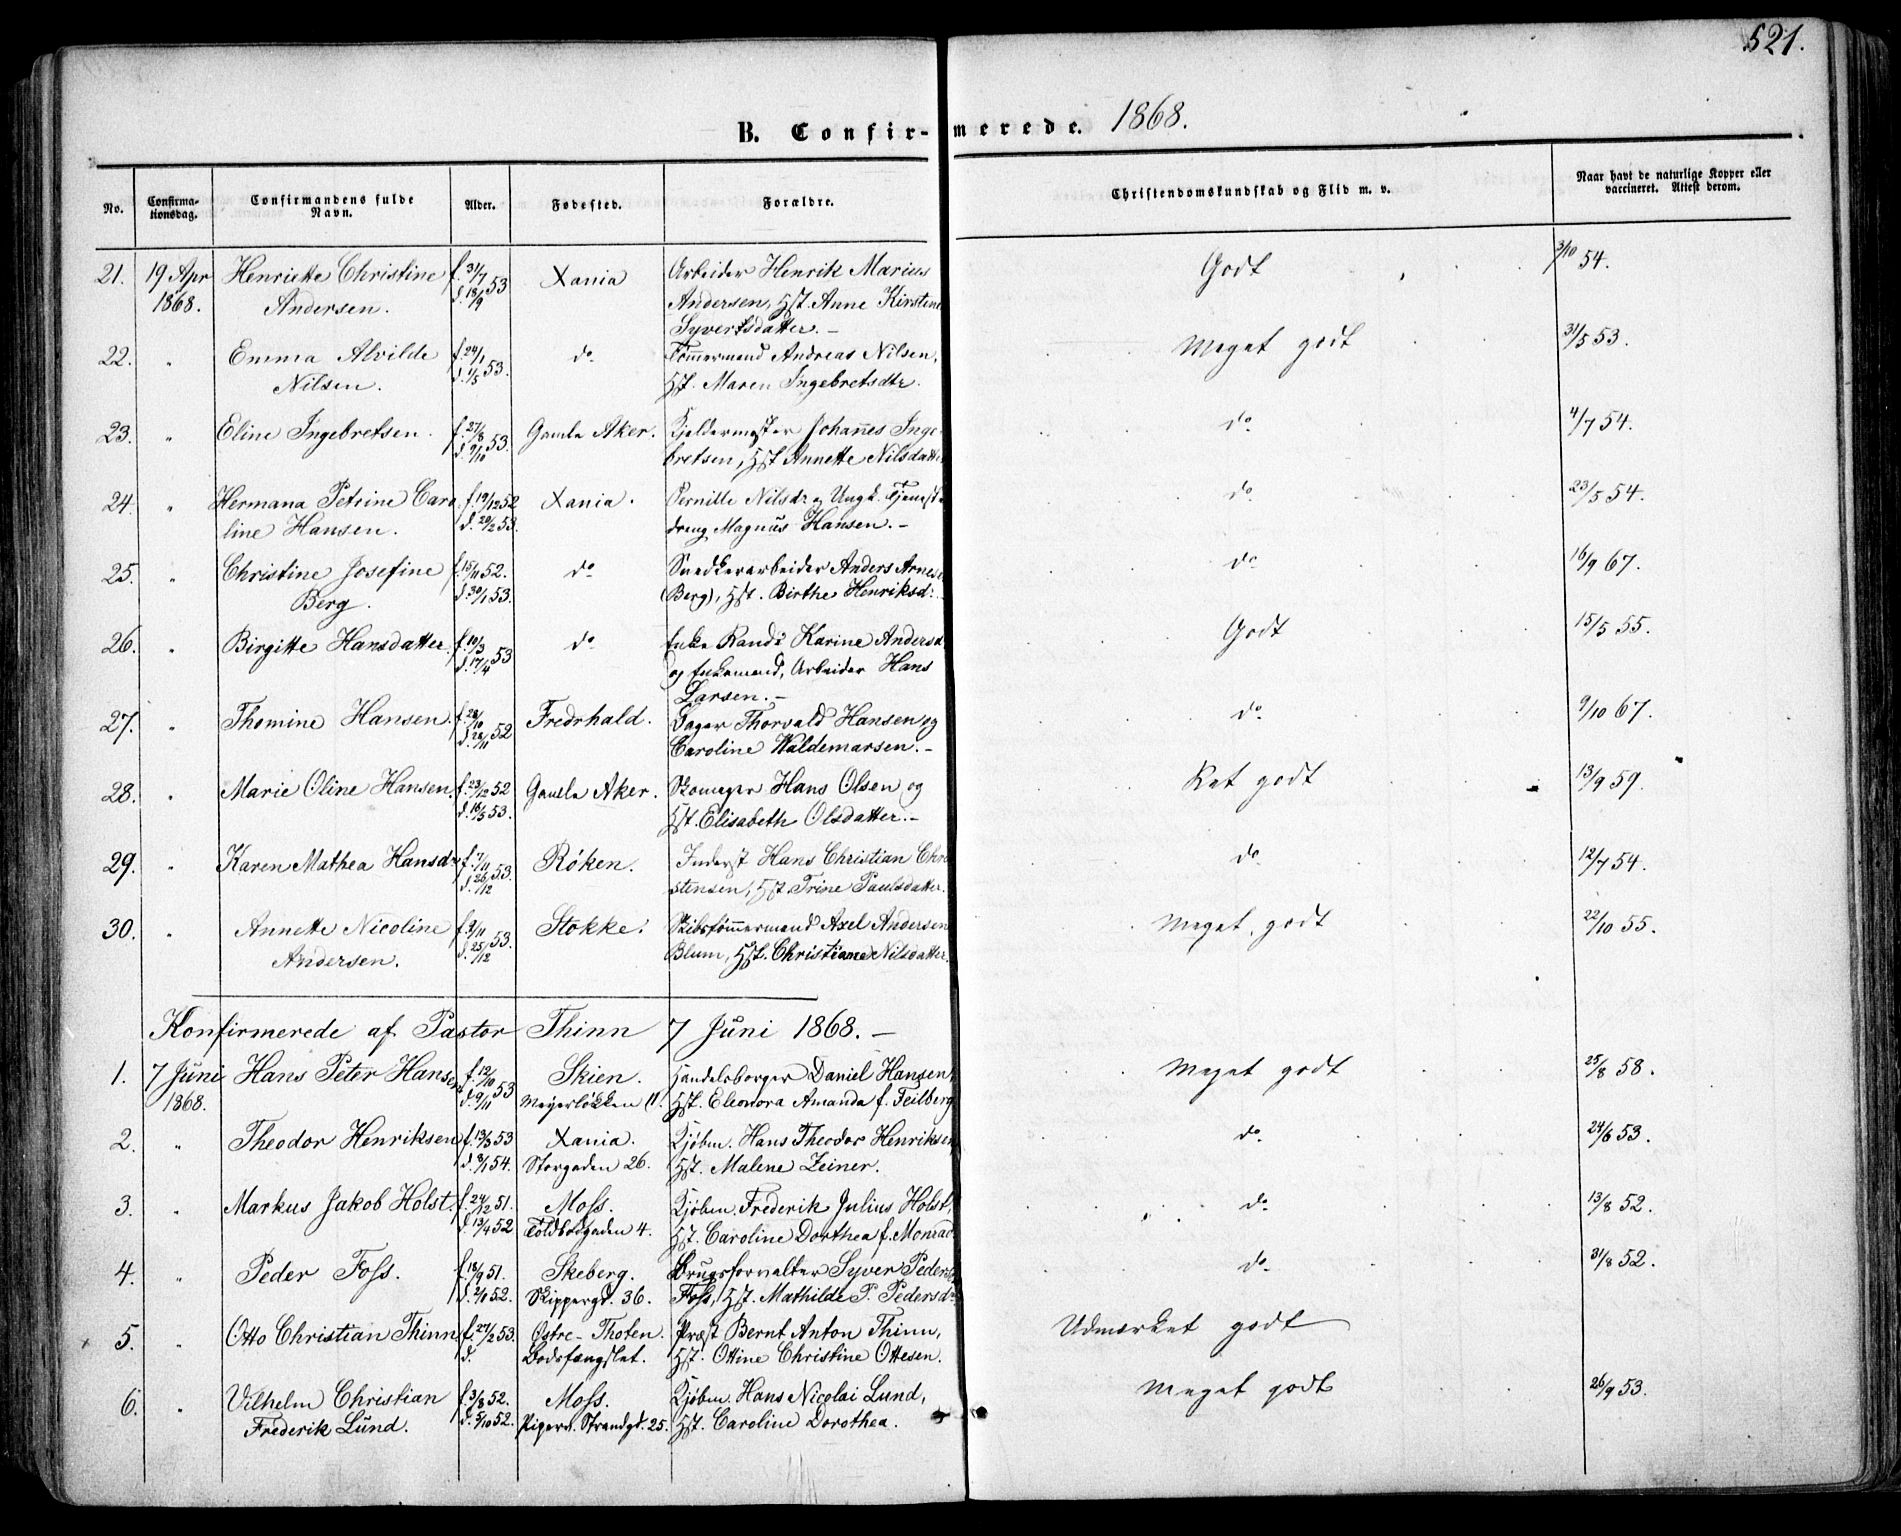 521.
B. Confir-merede. 1868.
No. Confirma-tionsdag. Confirmandens fulde Navn. Alder. Fødested. Forældre. Christendomskundskab og Flid m. v. Naar havt de naturlige Kopper eller vaccineret. Attest derom.
21. 19 Apr Henriette Christine f. 31/7 53 Xania Arbeider Henrik Marius Godt 3/10 54.
1868. Andersen. d. 18/9 Andersen, Hst. Anne Kirstine
Syvertsdatter. –
22. " Emma Alvilde f. 24/1 53. do Tømmermand Andreas Nilsen, Meget godt 31/5 53.
Nilsen. d. 1/5 Hst. Maren Ingebretsdtr.
23. " Eline Ingebretsen. f. 27/8 53. Gamle Aker. Kjeldermester Johannes Inge- do 4/7 54.
d. 9/10 bretsen, Hst Annette Nilsdatter
24. " Hermana Petrine Caro f. 19/12 52 Xania. Pernille Nilsdr og Ungk. Tjeneste do 23/5 54.
line Hansen. d. 20/2 53. dreng Magnus Hansen. –
25. " Christine Josefine f. 15/11 52. do Snedkerarbeider Anders Arnesen do 16/9 67.
Berg. d. 30/1 53. (Berg), Hst. Birthe Henriksdr.
26. " Birgitte Hansdatter f. 10/3 53 do Enke Randi Karine Andersd Godt 15/5 55.
d. 17/4 og Enkemand, Arbeider Hans
Larsen. –
27. " Thomine Hansen. f. 28/10 52 Fredrhald. Bager Thorvald Hansen og do 9/10 67.
d. 28/11 Caroline Waldemarsen. –
28. " Marie Oline Hansen. f. 23/12 52 Gamle Aker. Skomager Hans Olsen og Ret godt 13/9 59.
d. 16/5 53. Hst. Elisabeth Olsdatter. –
29. " Karen Mathea Hansdr f. 7/11 53. Røken. Inderst Hans Christian Chri do 12/7 54.
d. 26/12 stensen, Hst. Trine Paulsdatter.
30. " Annette Nicoline f. 9/11 53. Stokke. Skibstømmermand Axel Andersen Meget godt 22/10 55.
Andersen. d. 25/12 Blum, Hst. Christiane Nilsdatter.
Konfirmerede af Pastor Thinn 7 Juni 1868. –
1. 7 Juni Hans Peter Hansen f. 12/10 53 Skien. Handelsborger Daniel Hansen, Meget godt 25/8 58.
1868. d. 9/11 Meyerløkken 11. Hst. Eleonora Amanda f. Feilberg
2. " Theodor Henriksen f. 13/3 53 Xania. Kjøbm. Hans Theodor Henriksen, do 24/6 53.
d. 3/1 54. Storgaden 26. Hst. Malene Zeiner.
3. " Markus Jakob Holst. f. 24/12 51. Moss. Kjøbm. Frederik Julius Holst, do 13/8 52.
d. 13/4 52 Toldbodgaden 4. Hst. Caroline Dorthea f. Monrad.
4. " Peder Foss. f. 18/9 51. Skeberg. Brugsforvalter Syver Pedersen do 31/8 52.
d. 2/1 52. Skippergd. 36. Foss, Hst. Mathilde P. Pedersdr
5. " Otto Christian Thinn f. 27/2 53. Østre-Thoten. Præst Bernt Anton Thinn, Udmærket godt
d. Bodsfængslet. Hst. Ottine Christine Ottesen.
6. " Vilhelm Christian f. 3/8 52. Moss. Kjøbm. Hans Nicolai Lund, Meget godt 26/9 53.
Frederik Lund. d. 5/10 52. Piperv. Strandgd. 25. Hst. Caroline Dorothea.